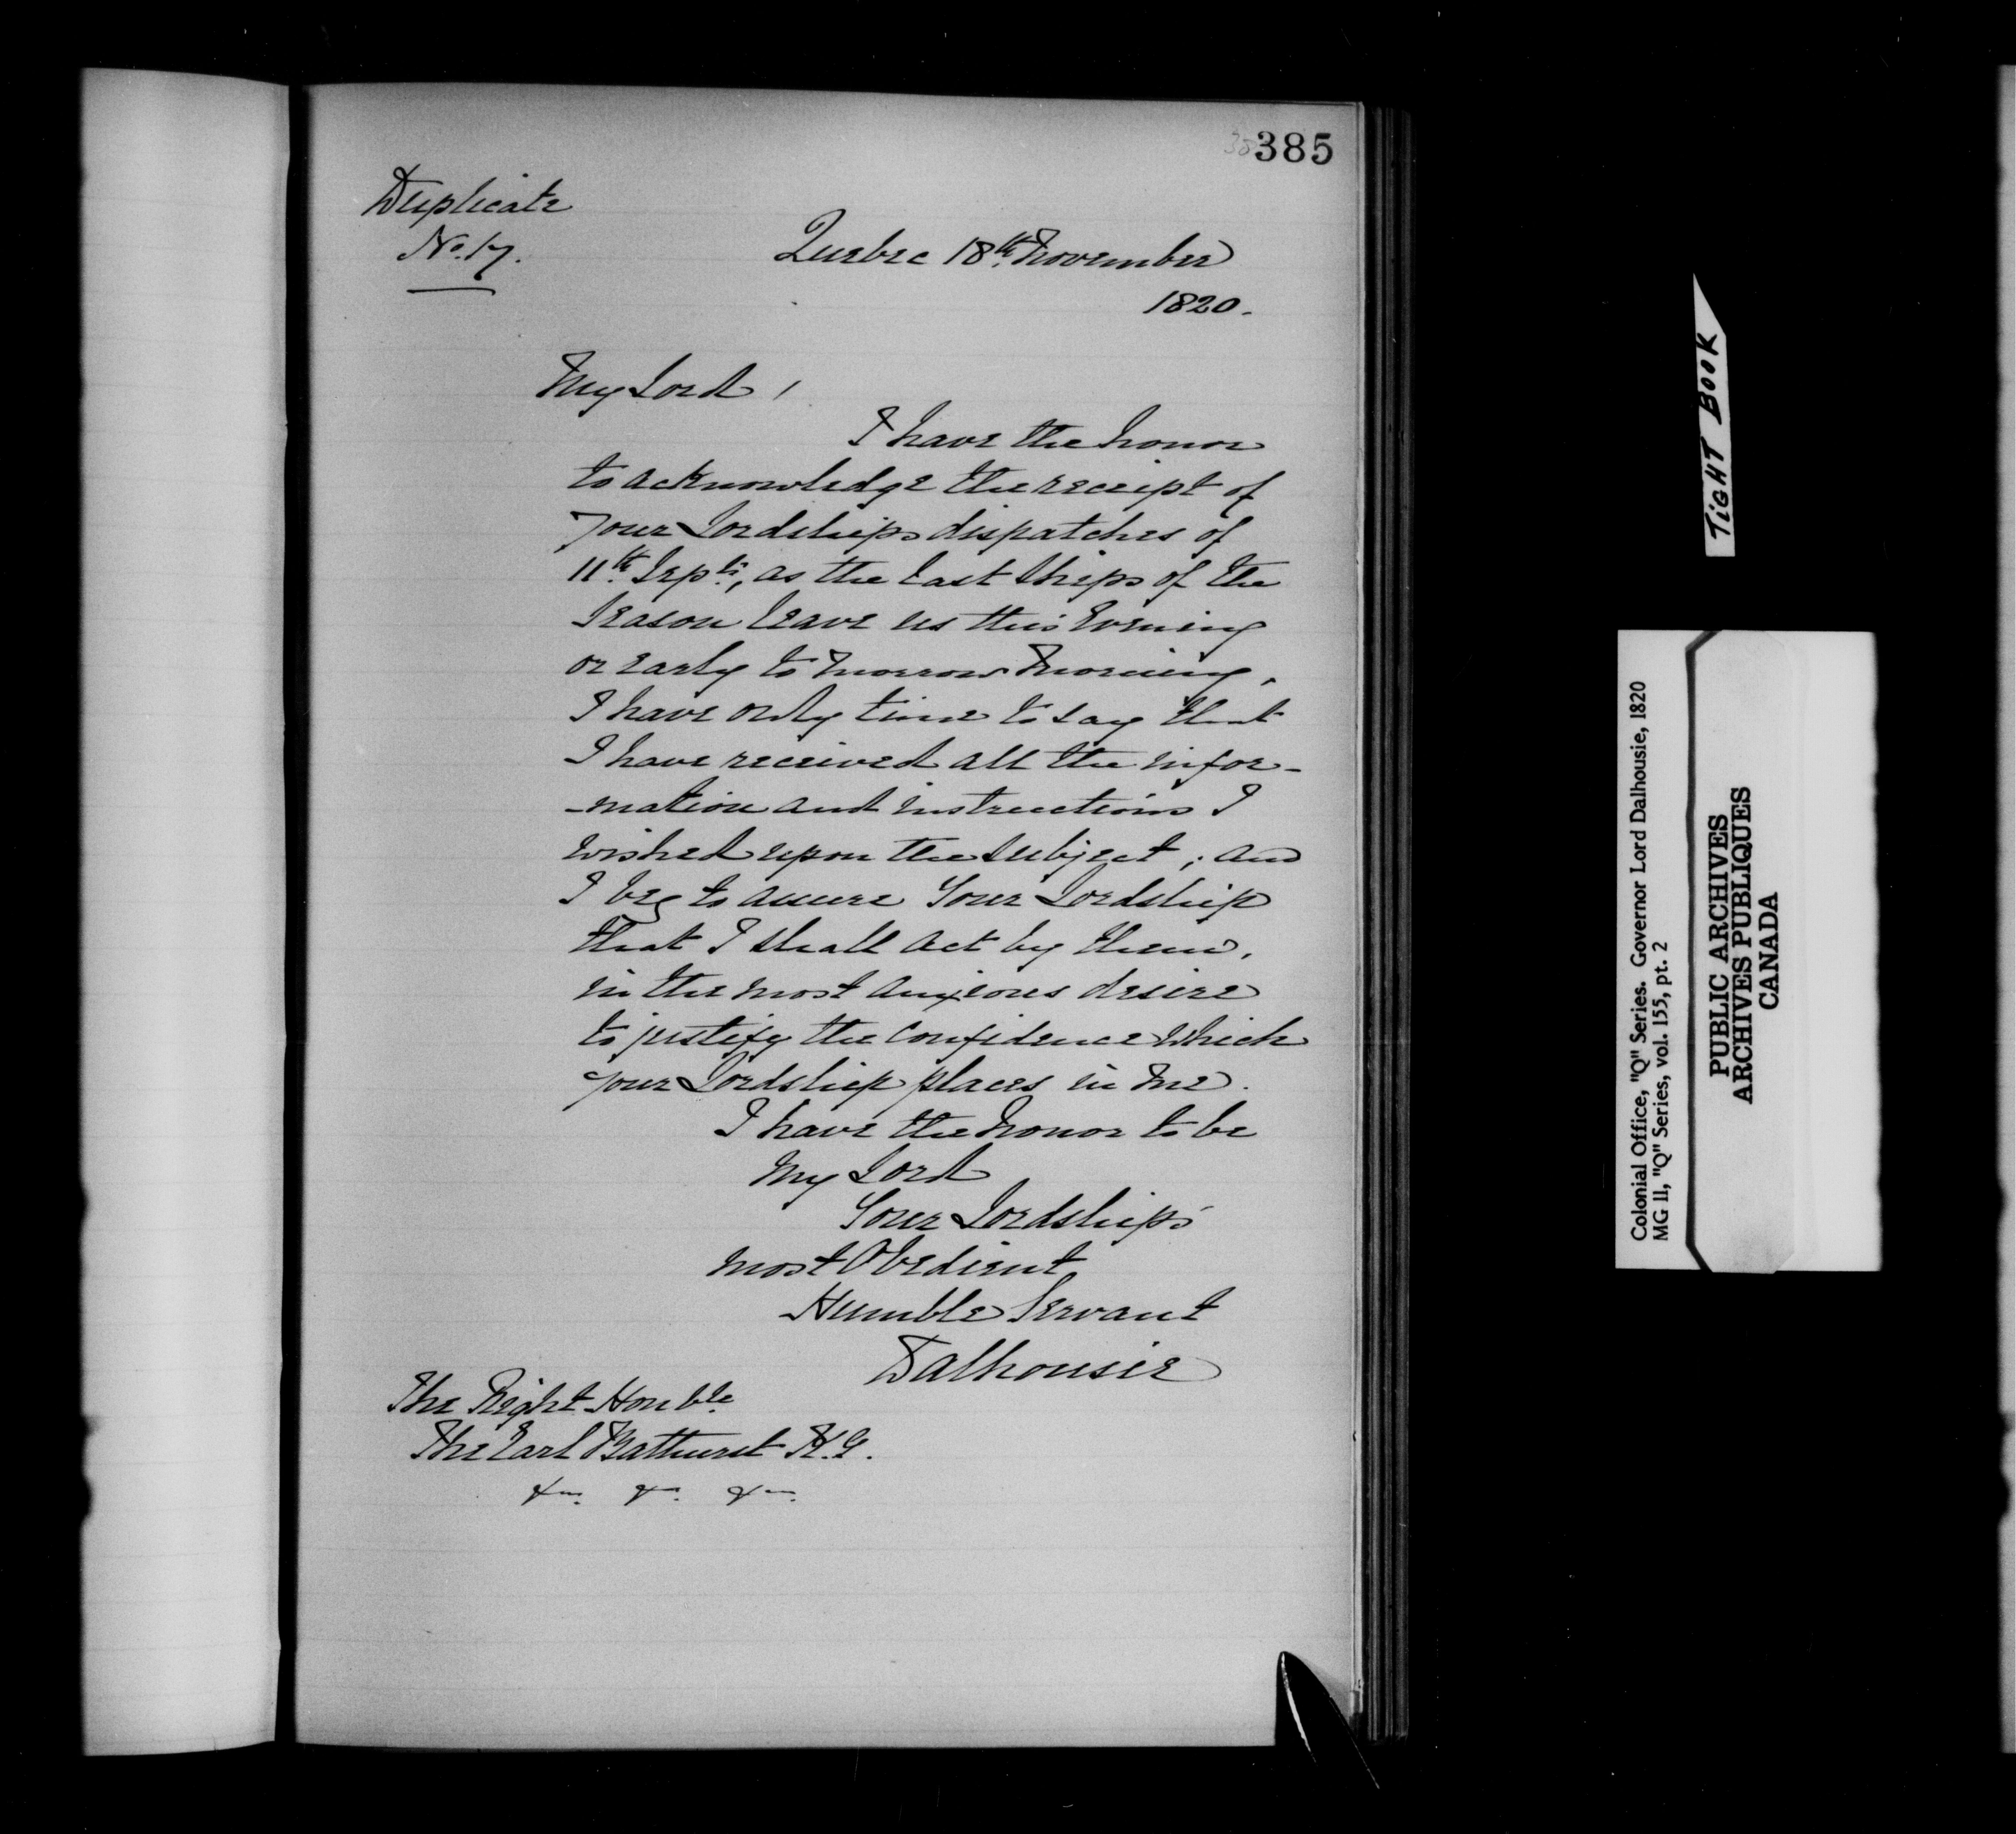 385
Duplicate
No. 17.
Quebec 18th November
1820.
My Lord,
I have the honor
to acknowledge the receipt of
Your Lordships dispatches of
11th Septr, as the last Ships of the
Season leave us this Evening
or early to morrow Morning,
I have only time to say that
I have received all the infor-
-mation and instructions I
wished upon the subject; and
I beg to assure Your Lordship
that I shall act by them,
in the most anxious desire
to justify the confidence which
your Lordship places in me.
I have the honor to be
My Lord
Your Lordships
most Obedient
Humble Servant
Dalhousie
The Right Honble
The Earl Bathurst K.G.
&c. &c. &c.
TIGHT BOOK
Colonial Office, "Q" Series. Governor Lord Dalhousie, 1820
MG 11, "Q" Series, vol. 155, pt. 2
PUBLIC ARCHIVES
ARCHIVES PUBLIQUES
CANADA